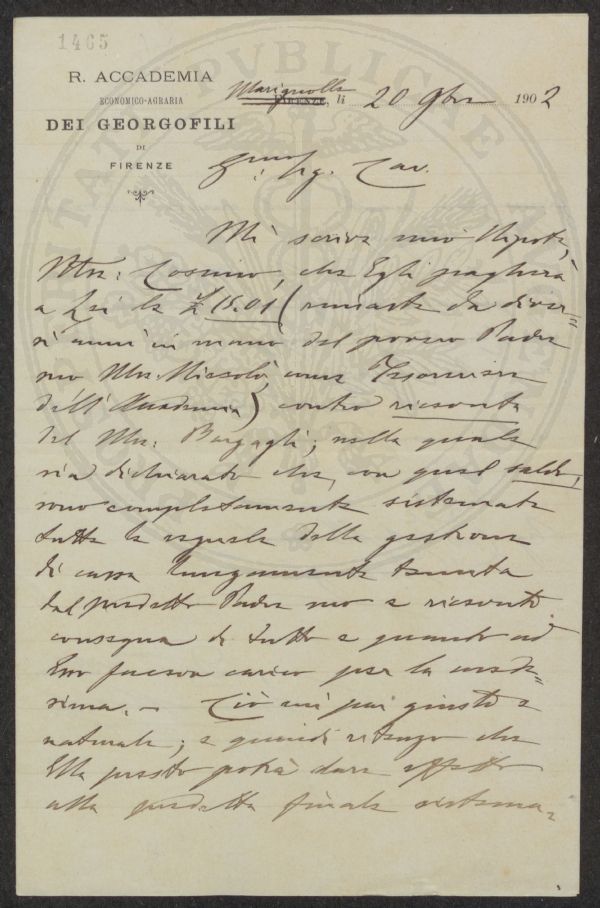 1465
R. ACCADEMIA
ECONOMICO-AGRARIA
DEI GEORGOFILI
DI
FIRENZE
Marignolle
FIRENZE, li 20 9bre 1902
Sig. Cav.
Mi scrive mio Nipote,
Mse: Cosimo, che Egli pagherà
a Lei le £ 18.01 (rimaste da diver=
si anni in mano del povero Padre
suo Mse. Niccolò, come Tesoriere
dell'Accademia) contro ricevuta
del Mse: Bargagli; nella quale
sia dichiarato che, con quel saldo,
sono completamente sistemate
tutte le della gestione
di cassa lungamente tenuta
dal predetto Padre suo e ricevuto
consegna di tutto e quanto ad
Esso faceva carico per la mede=
sima. - Ciò mi par giusto e
naturale; e quindi ritengo che
Ella presto potrà dare effetto
alla predetta finale sistema=
PUBLICAE